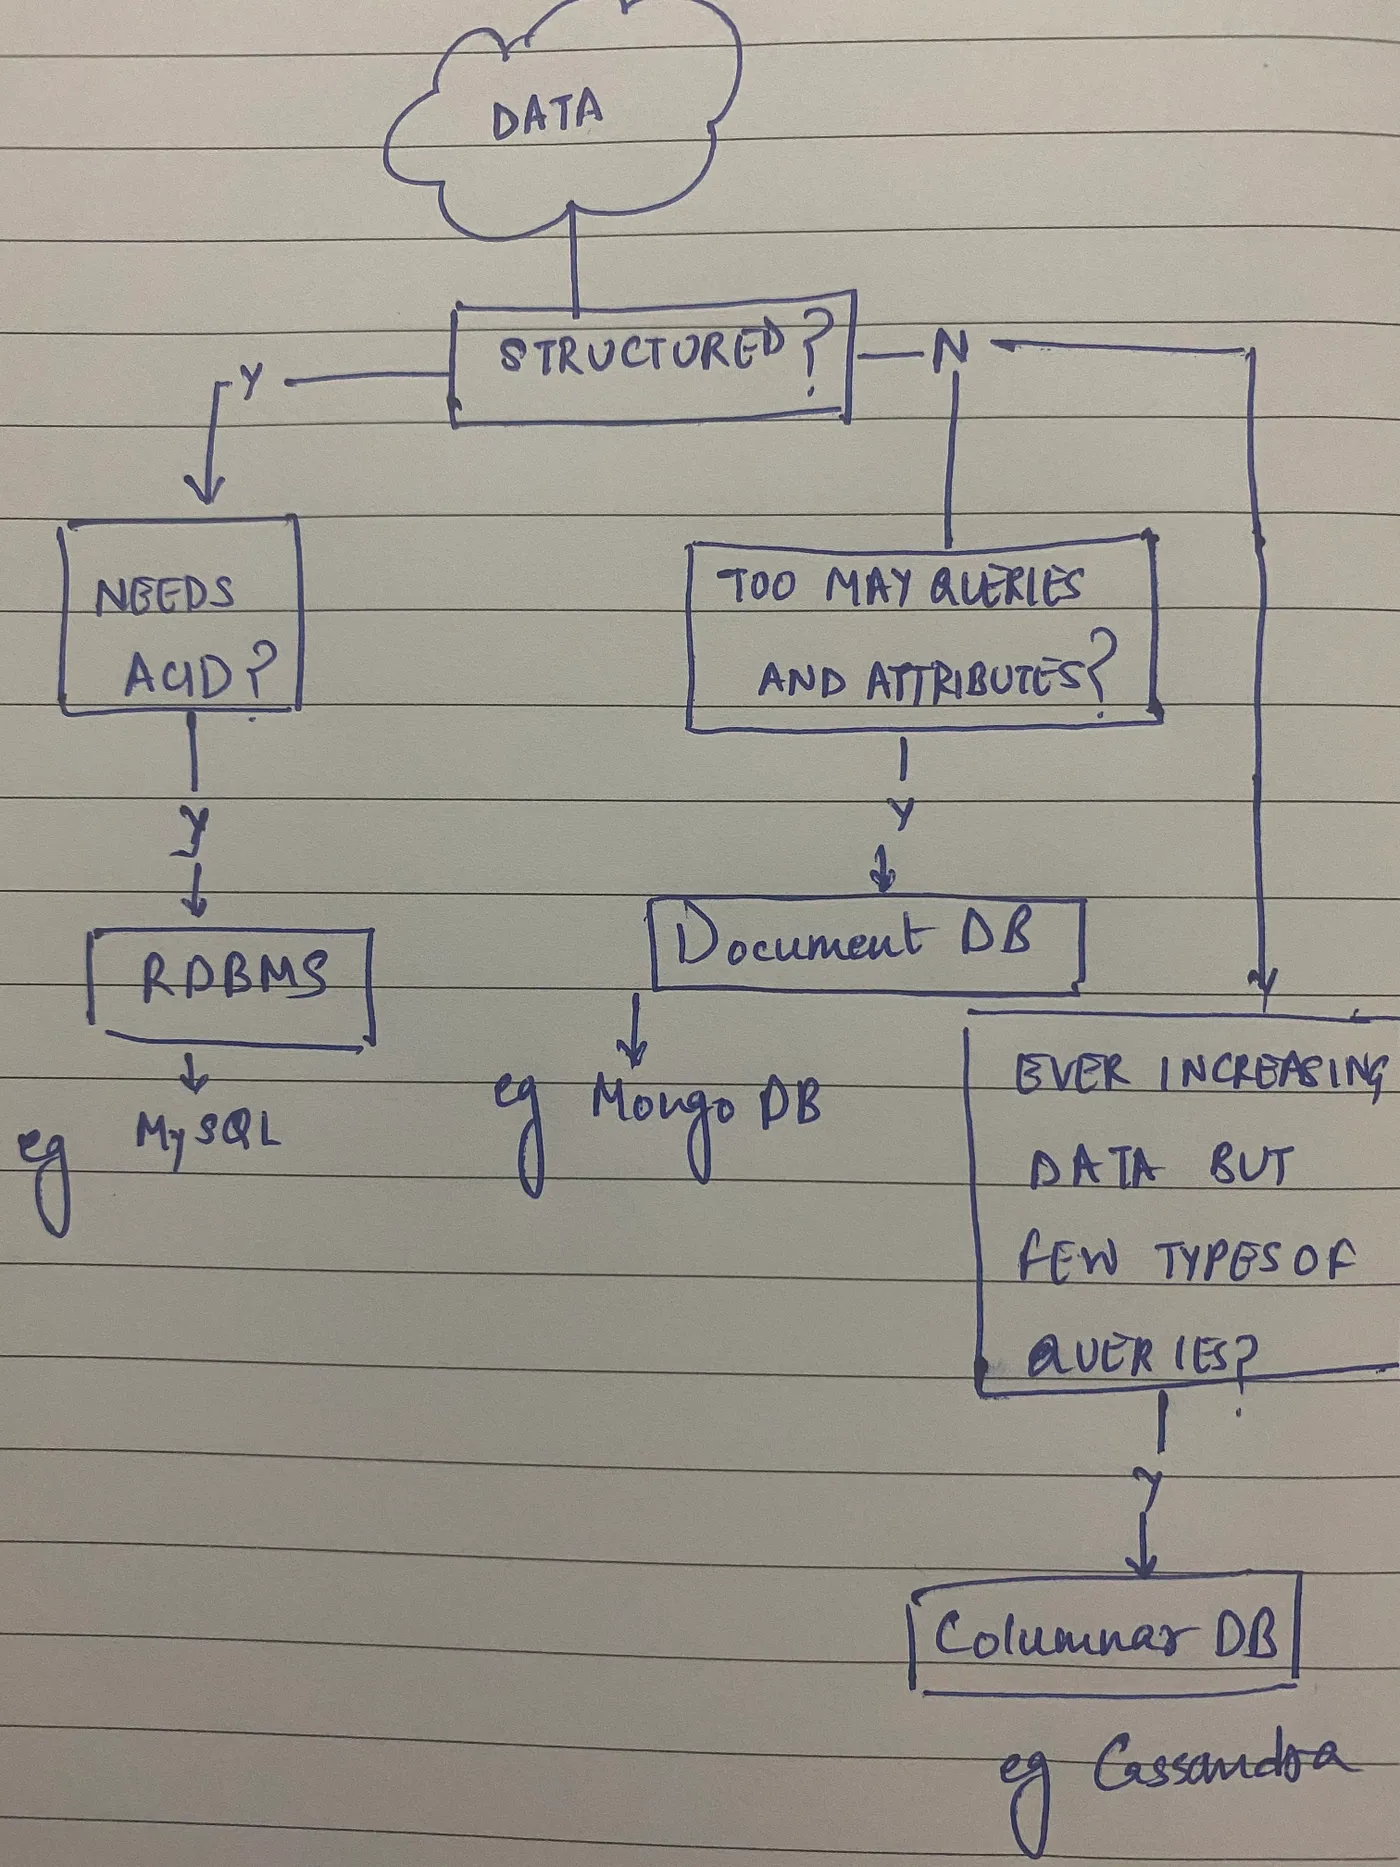 DATA
STRUCTURED?
Y
N
NEEDS
ACID?
TOO MAY QUERIES
AND ATTRIBUTES?
Y
Y
RDBMS
Document DB
eg MySQL
eg Mongo DB
EVER INCREASING
DATA BUT
FEW TYPES OF
QUERIES?
Y
Columnar DB
eg Cassandra